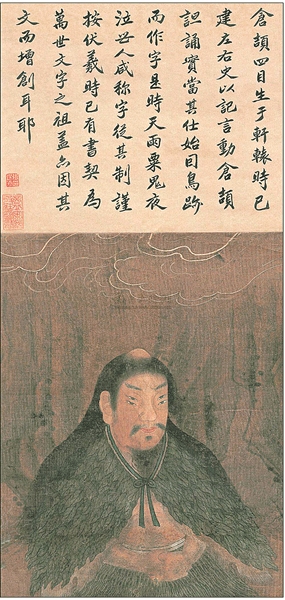 倉頡四目生于軒轅時已
建左右史以記言動倉頡
詛誦實當其仕始目鳥跡
而作字是時天雨粟鬼夜
泣世人咸称字從其制謹
按伏羲時已有書契為
萬世文字之祖盖亦因其
文而增創耳耶